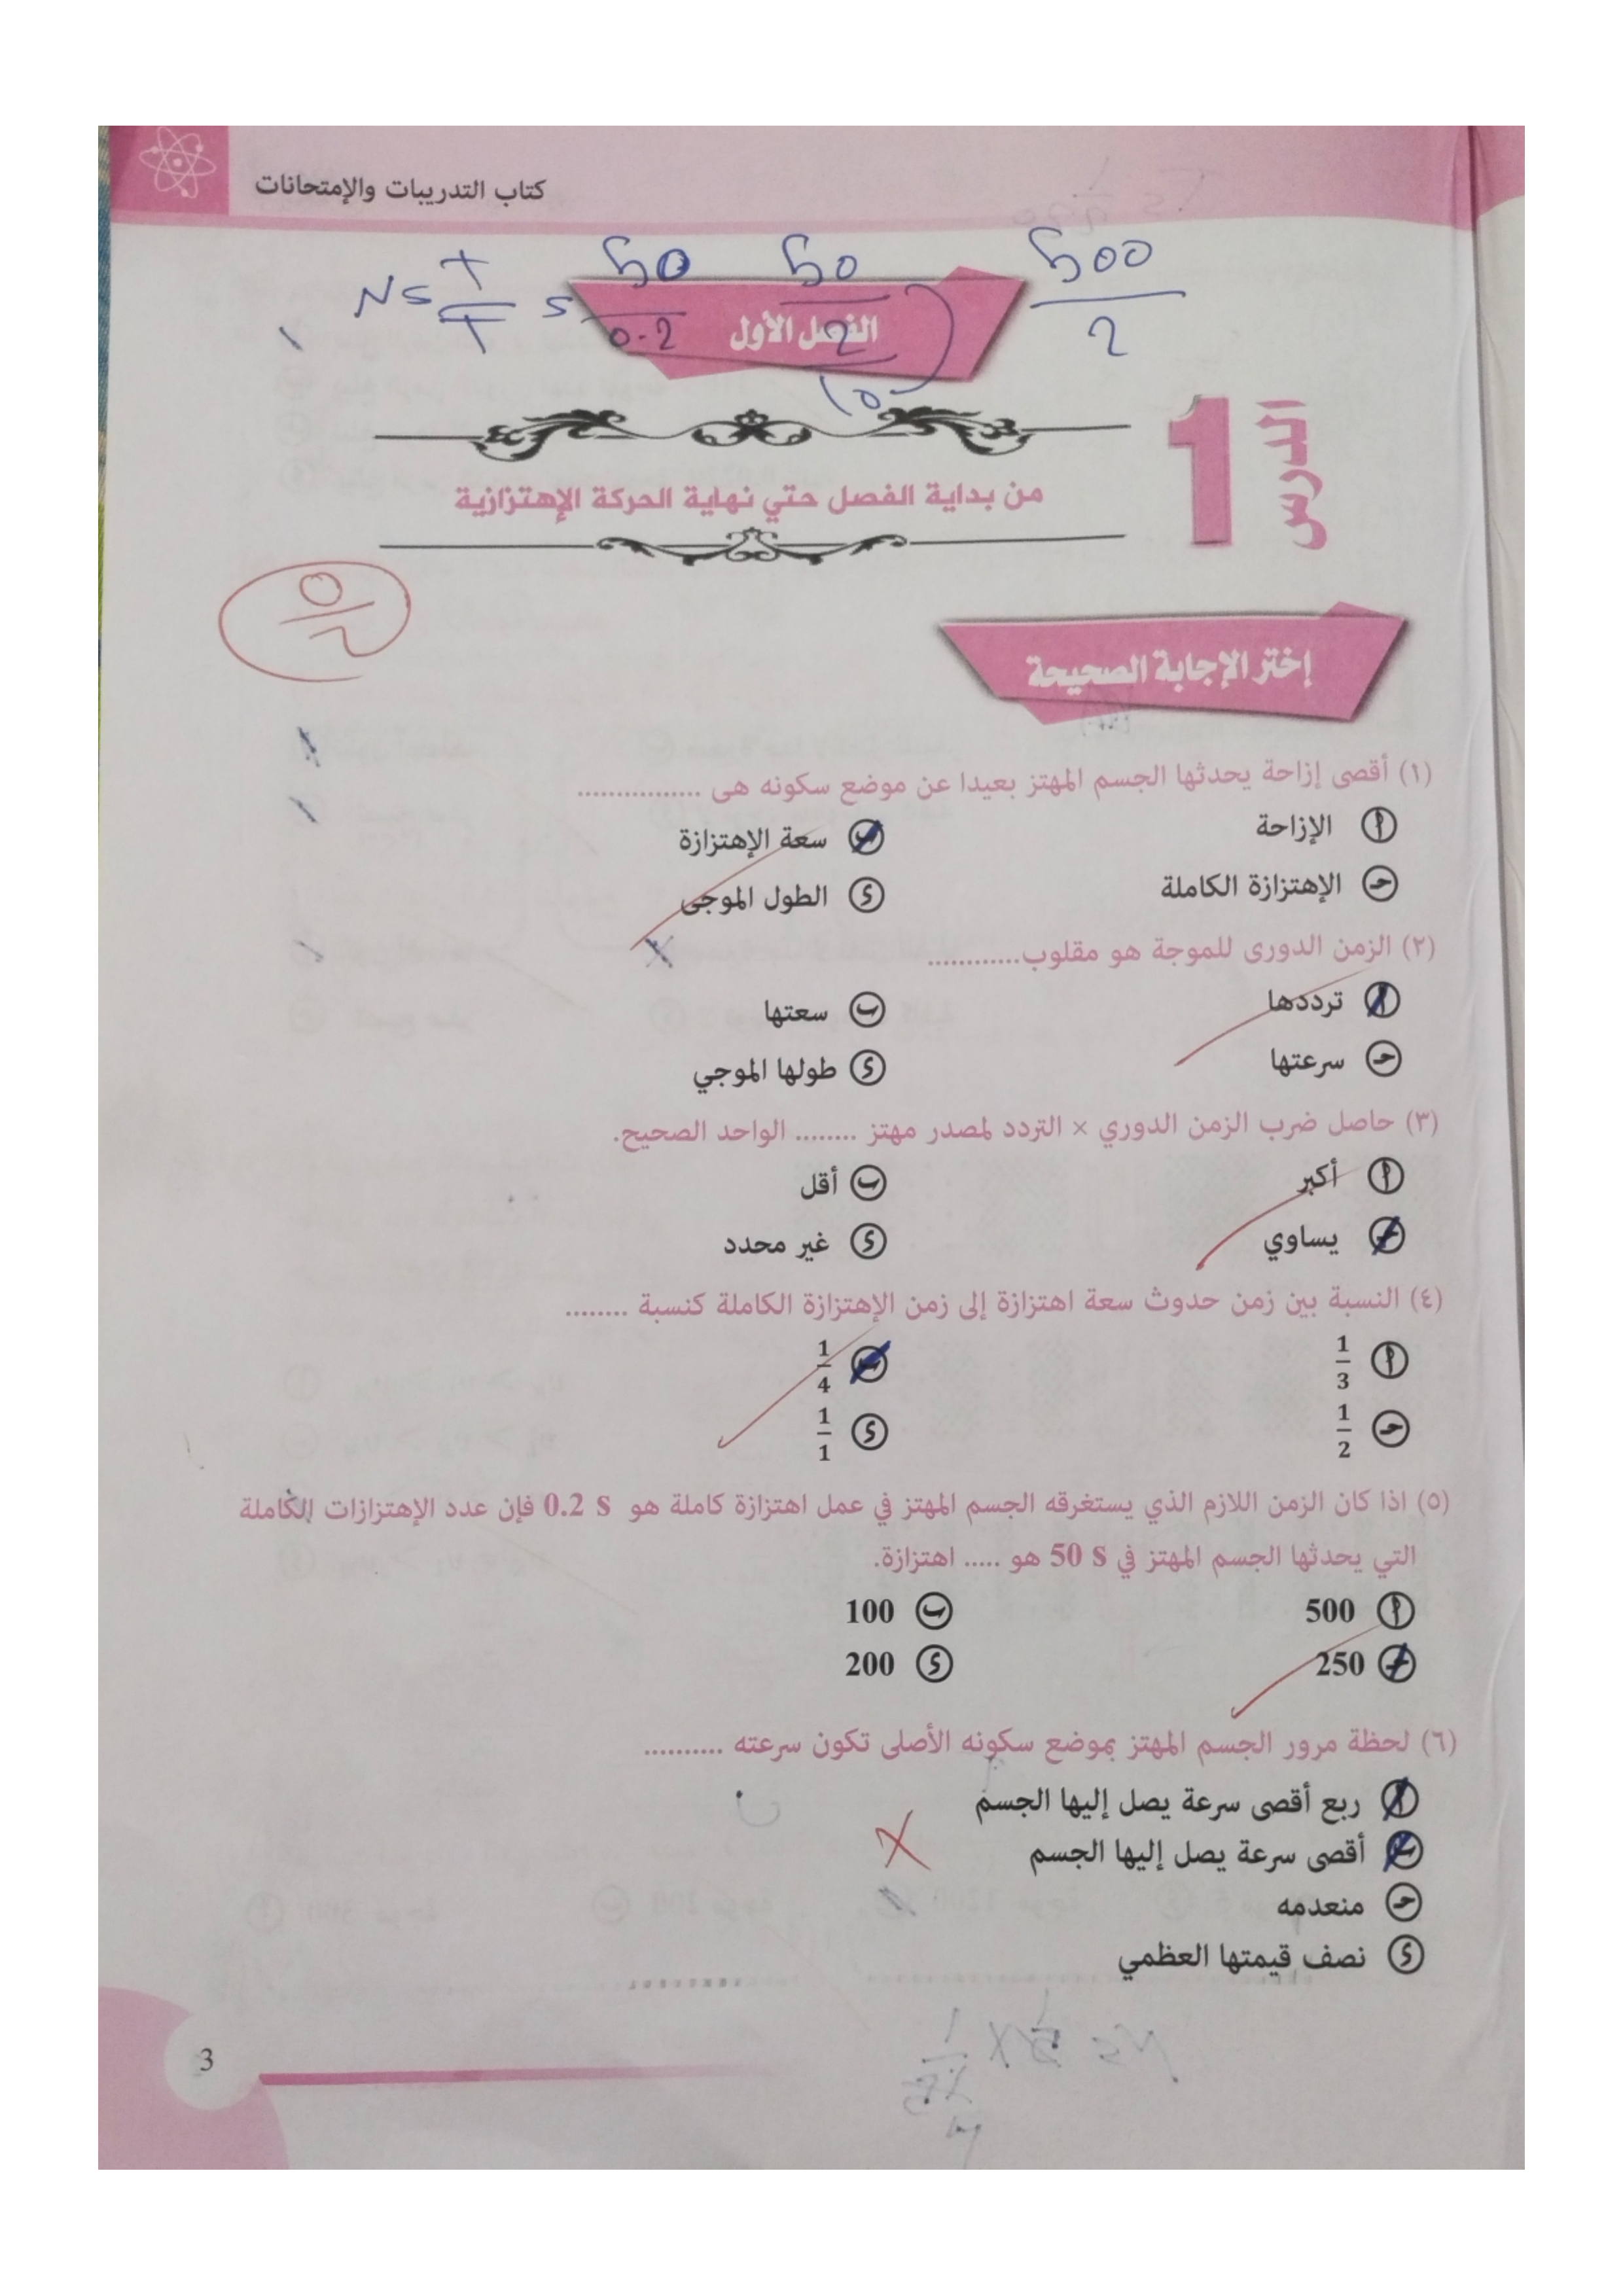 كتاب التدريبات والإمتحانات
50 50 500
0.2 2 2
10
الفصل الأول
الدرس 1
من بداية الفصل حتي نهاية الحركة الإهتزازية
إختر الإجابة الصحيحة
(١) أقصى إزاحة يحدثها الجسم المهتز بعيدا عن موضع سكونه هى ................
أ الإزاحة ب سعة الإهتزازة
حـ الإهتزازة الكاملة د الطول الموجى
(٢) الزمن الدورى للموجة هو مقلوب............
أ ترددها ب سعتها
حـ سرعتها د طولها الموجي
(٣) حاصل ضرب الزمن الدوري × التردد لمصدر مهتز ........ الواحد الصحيح.
أ أكبر ب أقل
حـ يساوي د غير محدد
(٤) النسبة بين زمن حدوث سعة اهتزازة إلى زمن الإهتزازة الكاملة كنسبة ........
أ 1/3 ب 1/4
حـ 1/2 د 1/1
(٥) اذا كان الزمن اللازم الذي يستغرقه الجسم المهتز في عمل اهتزازة كاملة هو 0.2 s فإن عدد الإهتزازات الكاملة
التي يحدثها الجسم المهتز في 50 s هو ..... اهتزازة.
أ 500 ب 100
حـ 250 د 200
(٦) لحظة مرور الجسم المهتز بموضع سكونه الأصلى تكون سرعته ..........
أ ربع أقصى سرعة يصل إليها الجسم
ب أقصى سرعة يصل إليها الجسم
حـ منعدمه
د نصف قيمتها العظمي
3